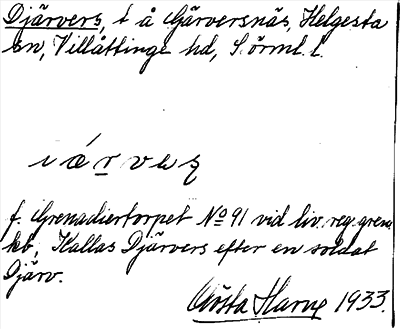 Djärvers, t å Gärversnäs, Helgesta
sn, Villåttinge hd, Sörml. l.
f. Grenadiertorpet No 91 vid liv. reg. gren.
kb, Kallas Djärvers efter en soldat
Djärv.
Gösta Harup 1933.